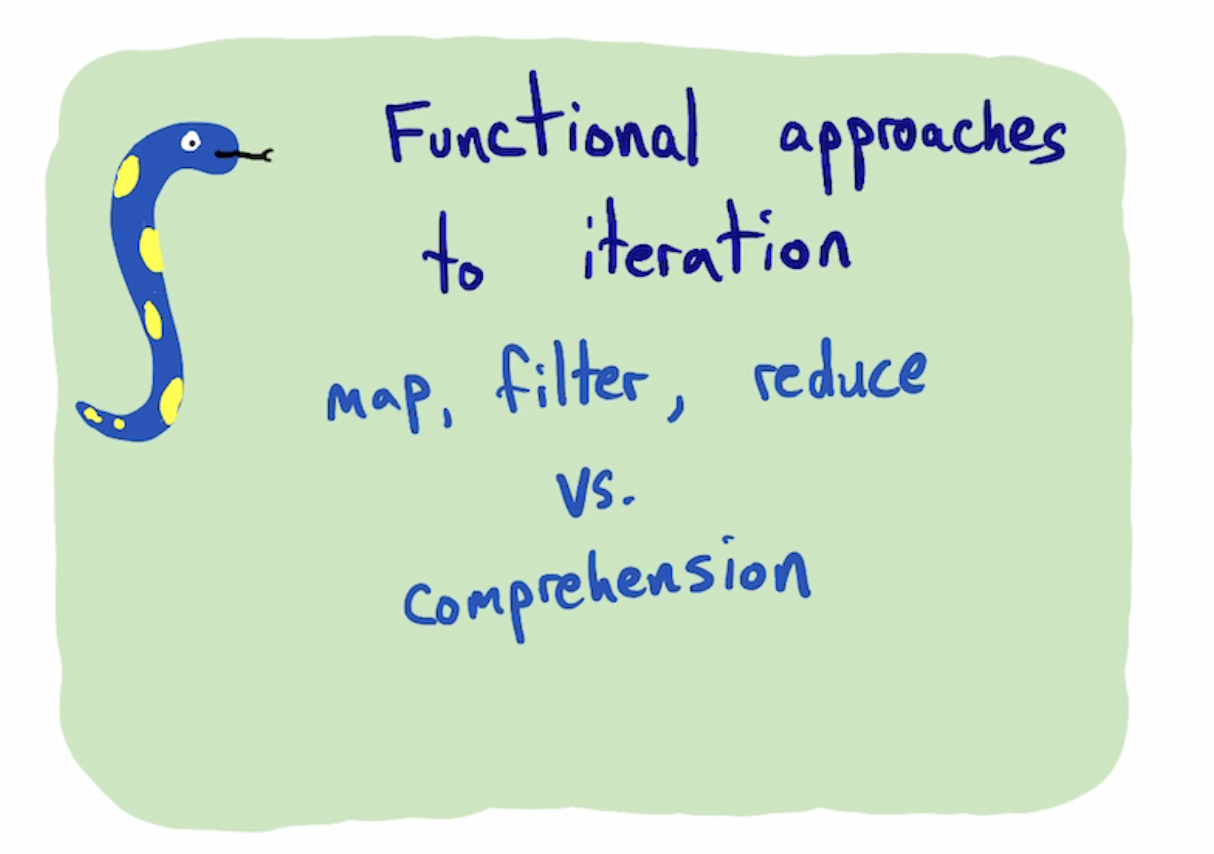 Functional approaches
to iteration
map, filter, reduce
vs.
comprehension